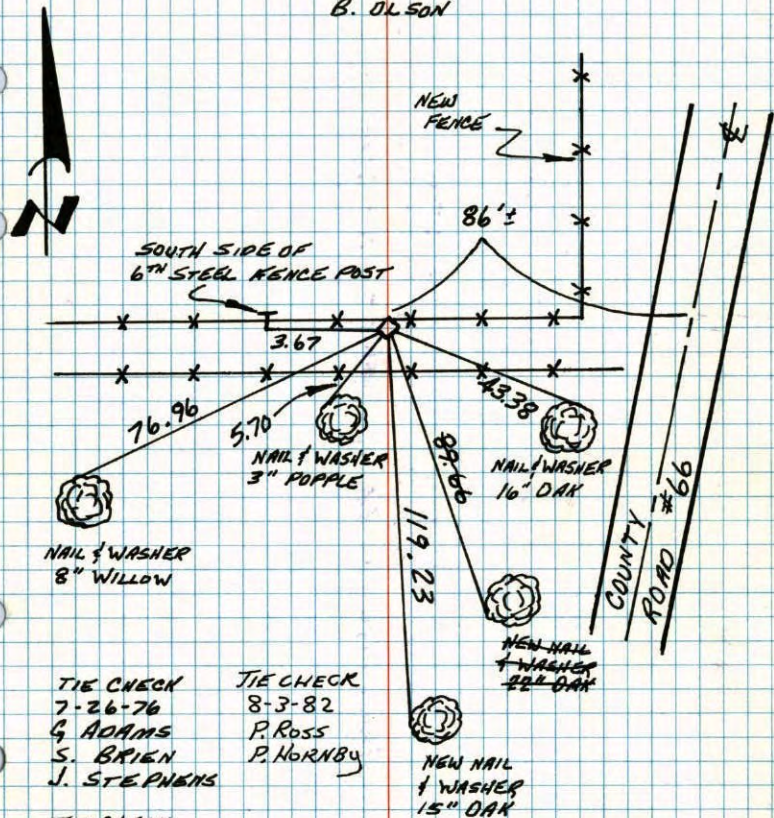 B. OLSON
NEW
FENCE
86'±
SOUTH SIDE OF
6TH STEEL FENCE POST
3.67
N
℄
76.96
5.70
43.38
NAIL & WASHER
3" POPPLE
NAIL & WASHER
16" OAK
89.66
119.23
NAIL & WASHER
8" WILLOW
COUNTY
ROAD #66
NEW NAIL
& WASHER
22" OAK
TIE CHECK
7-26-76
G ADAMS
S. BRIEN
J. STEPHENS
TIE CHECK
8-3-82
P. ROSS
P. HORNBY
NEW NAIL
& WASHER
15" OAK